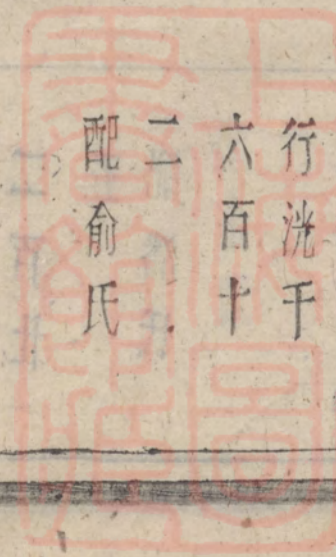 行洸千
六百十
二
配俞氏